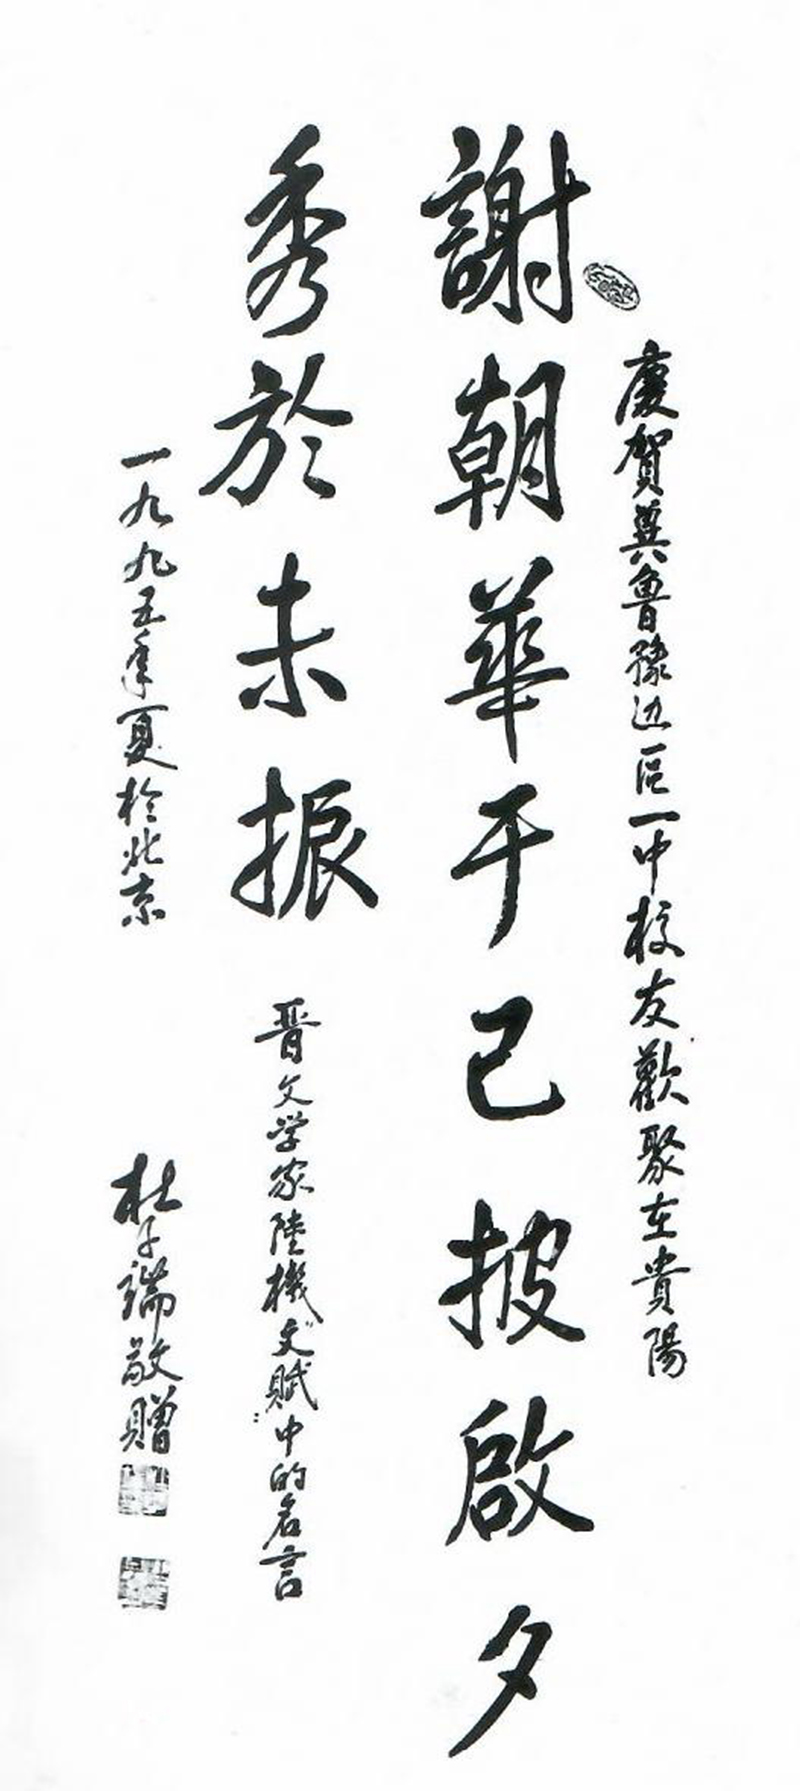 慶賀冀魯豫边区一中校友歡聚在貴陽
謝朝華于己披啟夕
秀於未振
晋文学家陸機"文賦"中的名言
一九九五年夏於北京
杜子端敬贈